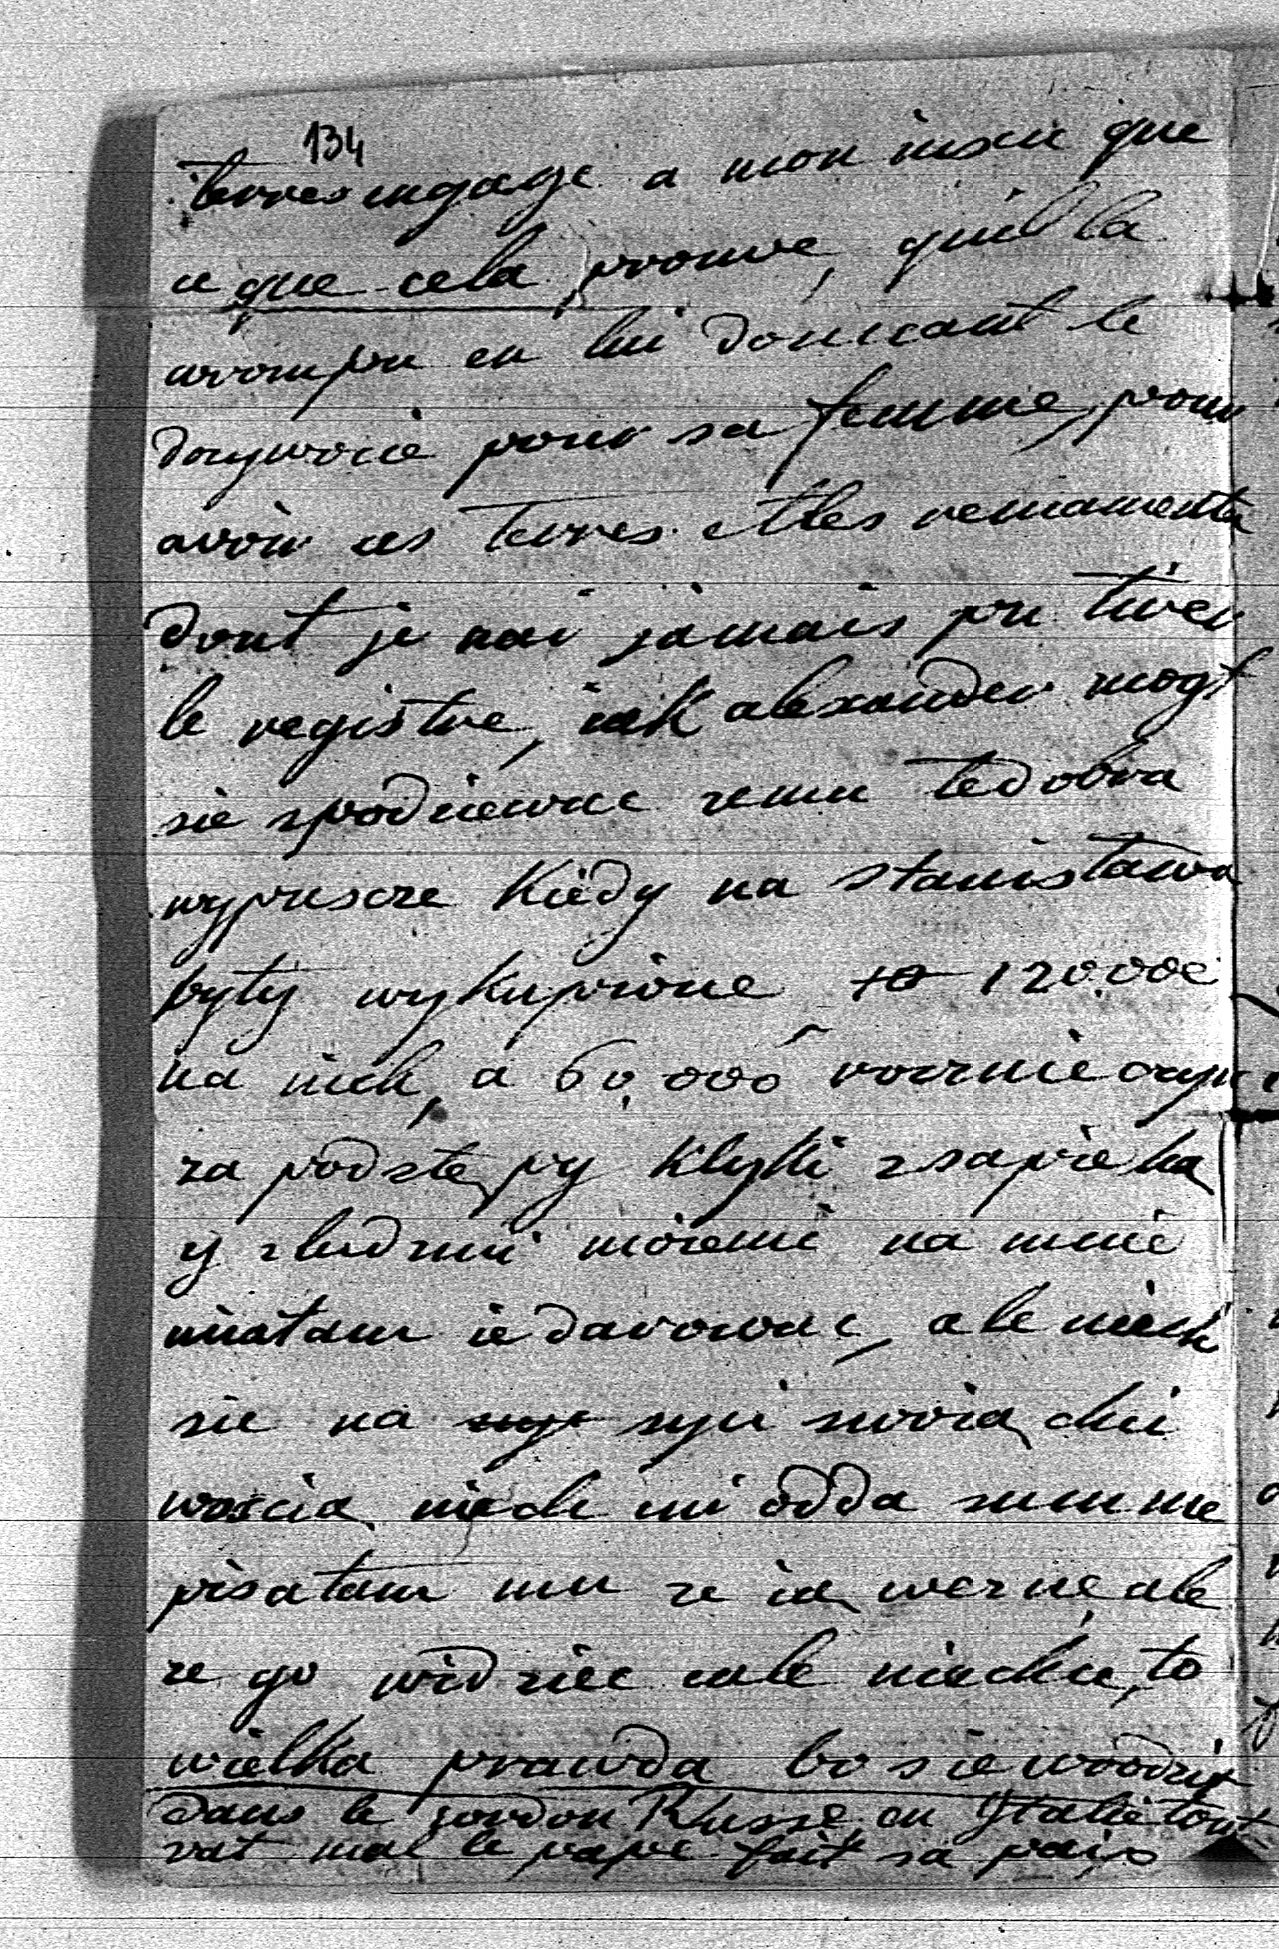 134
terres engage a mon inscu que
ce que cela prouve, quil la
corompu en lui donnant le
dozywocie pour sa femme, pour
avoir ces terres et les remamenta
dont je nai jamais pu tirer
le registre, iak alexander mogł
sie spodziewac zemu te dobra
wypuscze kiedy na stanisława
były wykupione 120.000
na nich, a 60,000 rocznie czyn
za podstępy klytki z sapiecha
y zludzmi moiemi na mnie
miałam ie darowac, ale niech
sie na syci swoią chci
woscią niech mi odda summe
pisałam mu ze ią wezne ale
ze go widziec cale niechce, to
wielka prawda bo sie wrodził
dans le gordon Russe, en Ytalie tout
vat mal le pape fait sa paix